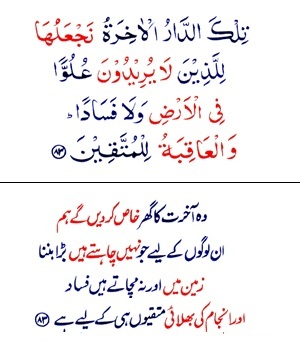 تِلْكَ الدَّارُ الْاٰخِرَةُ نَجْعَلُهَا
لِلَّذِيْنَ لَا يُرِيْدُوْنَ عُلُوًّا
فِى الْاَرْضِ وَلَا فَسَادًا ؕ
وَالْعَاقِبَةُ لِلْمُتَّقِيْنَ ﴿۸۳﴾
وہ آخرت کا گھر خاص کر دیں گے ہم
ان لوگوں کے لیے جو نہیں چاہتے ہیں بڑا بننا
زمین میں اور نہ مچاتے ہیں فساد
اور انجام کی بھلائی متقیوں ہی کے لیے ہے ﴿۸۳﴾